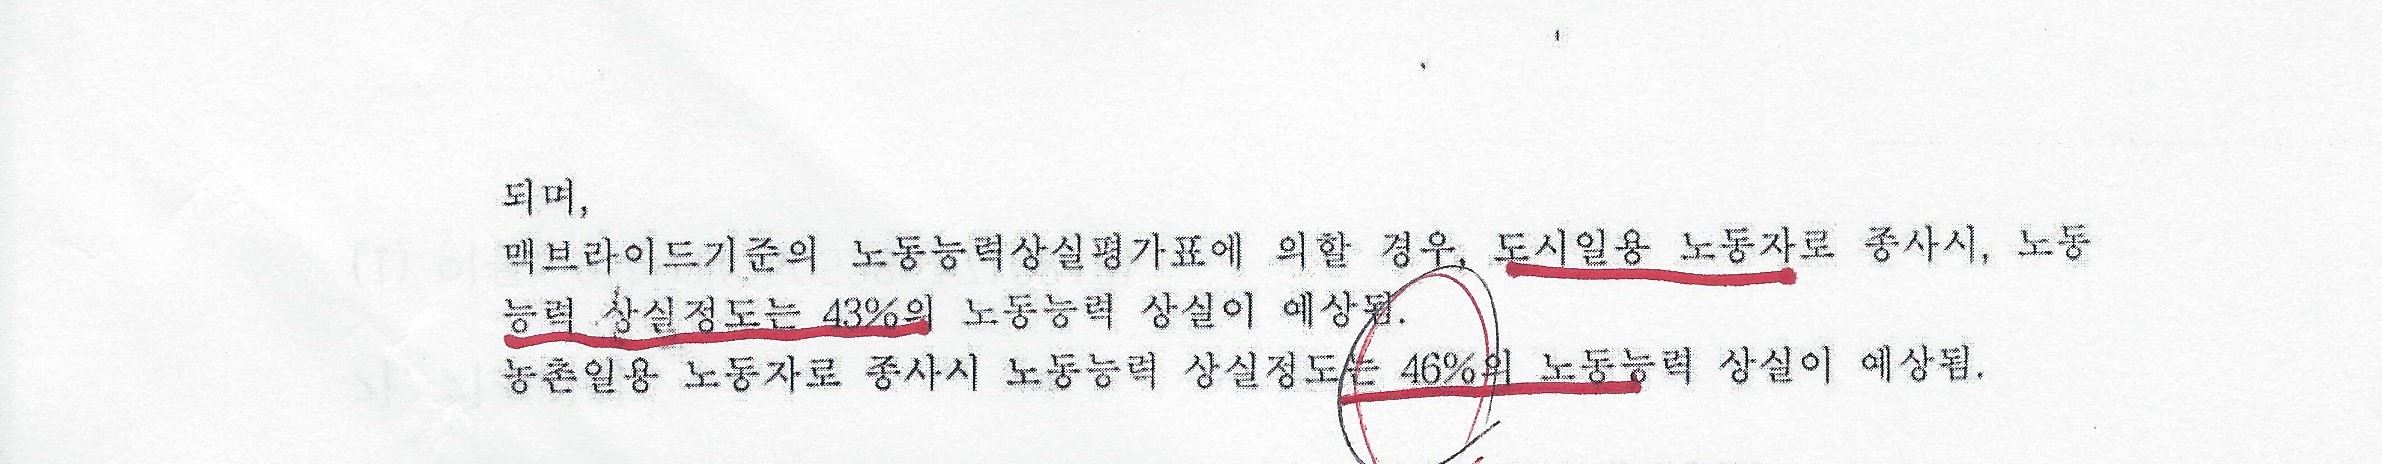 되며,
맥브라이드기준의 노동능력상실평가표에 의할 경우, 도시일용 노동자로 종사시, 노동
능력 상실정도는 43%의 노동능력 상실이 예상됨.
농촌일용 노동자로 종사시 노동능력 상실정도는 46%의 노동능력 상실이 예상됨.